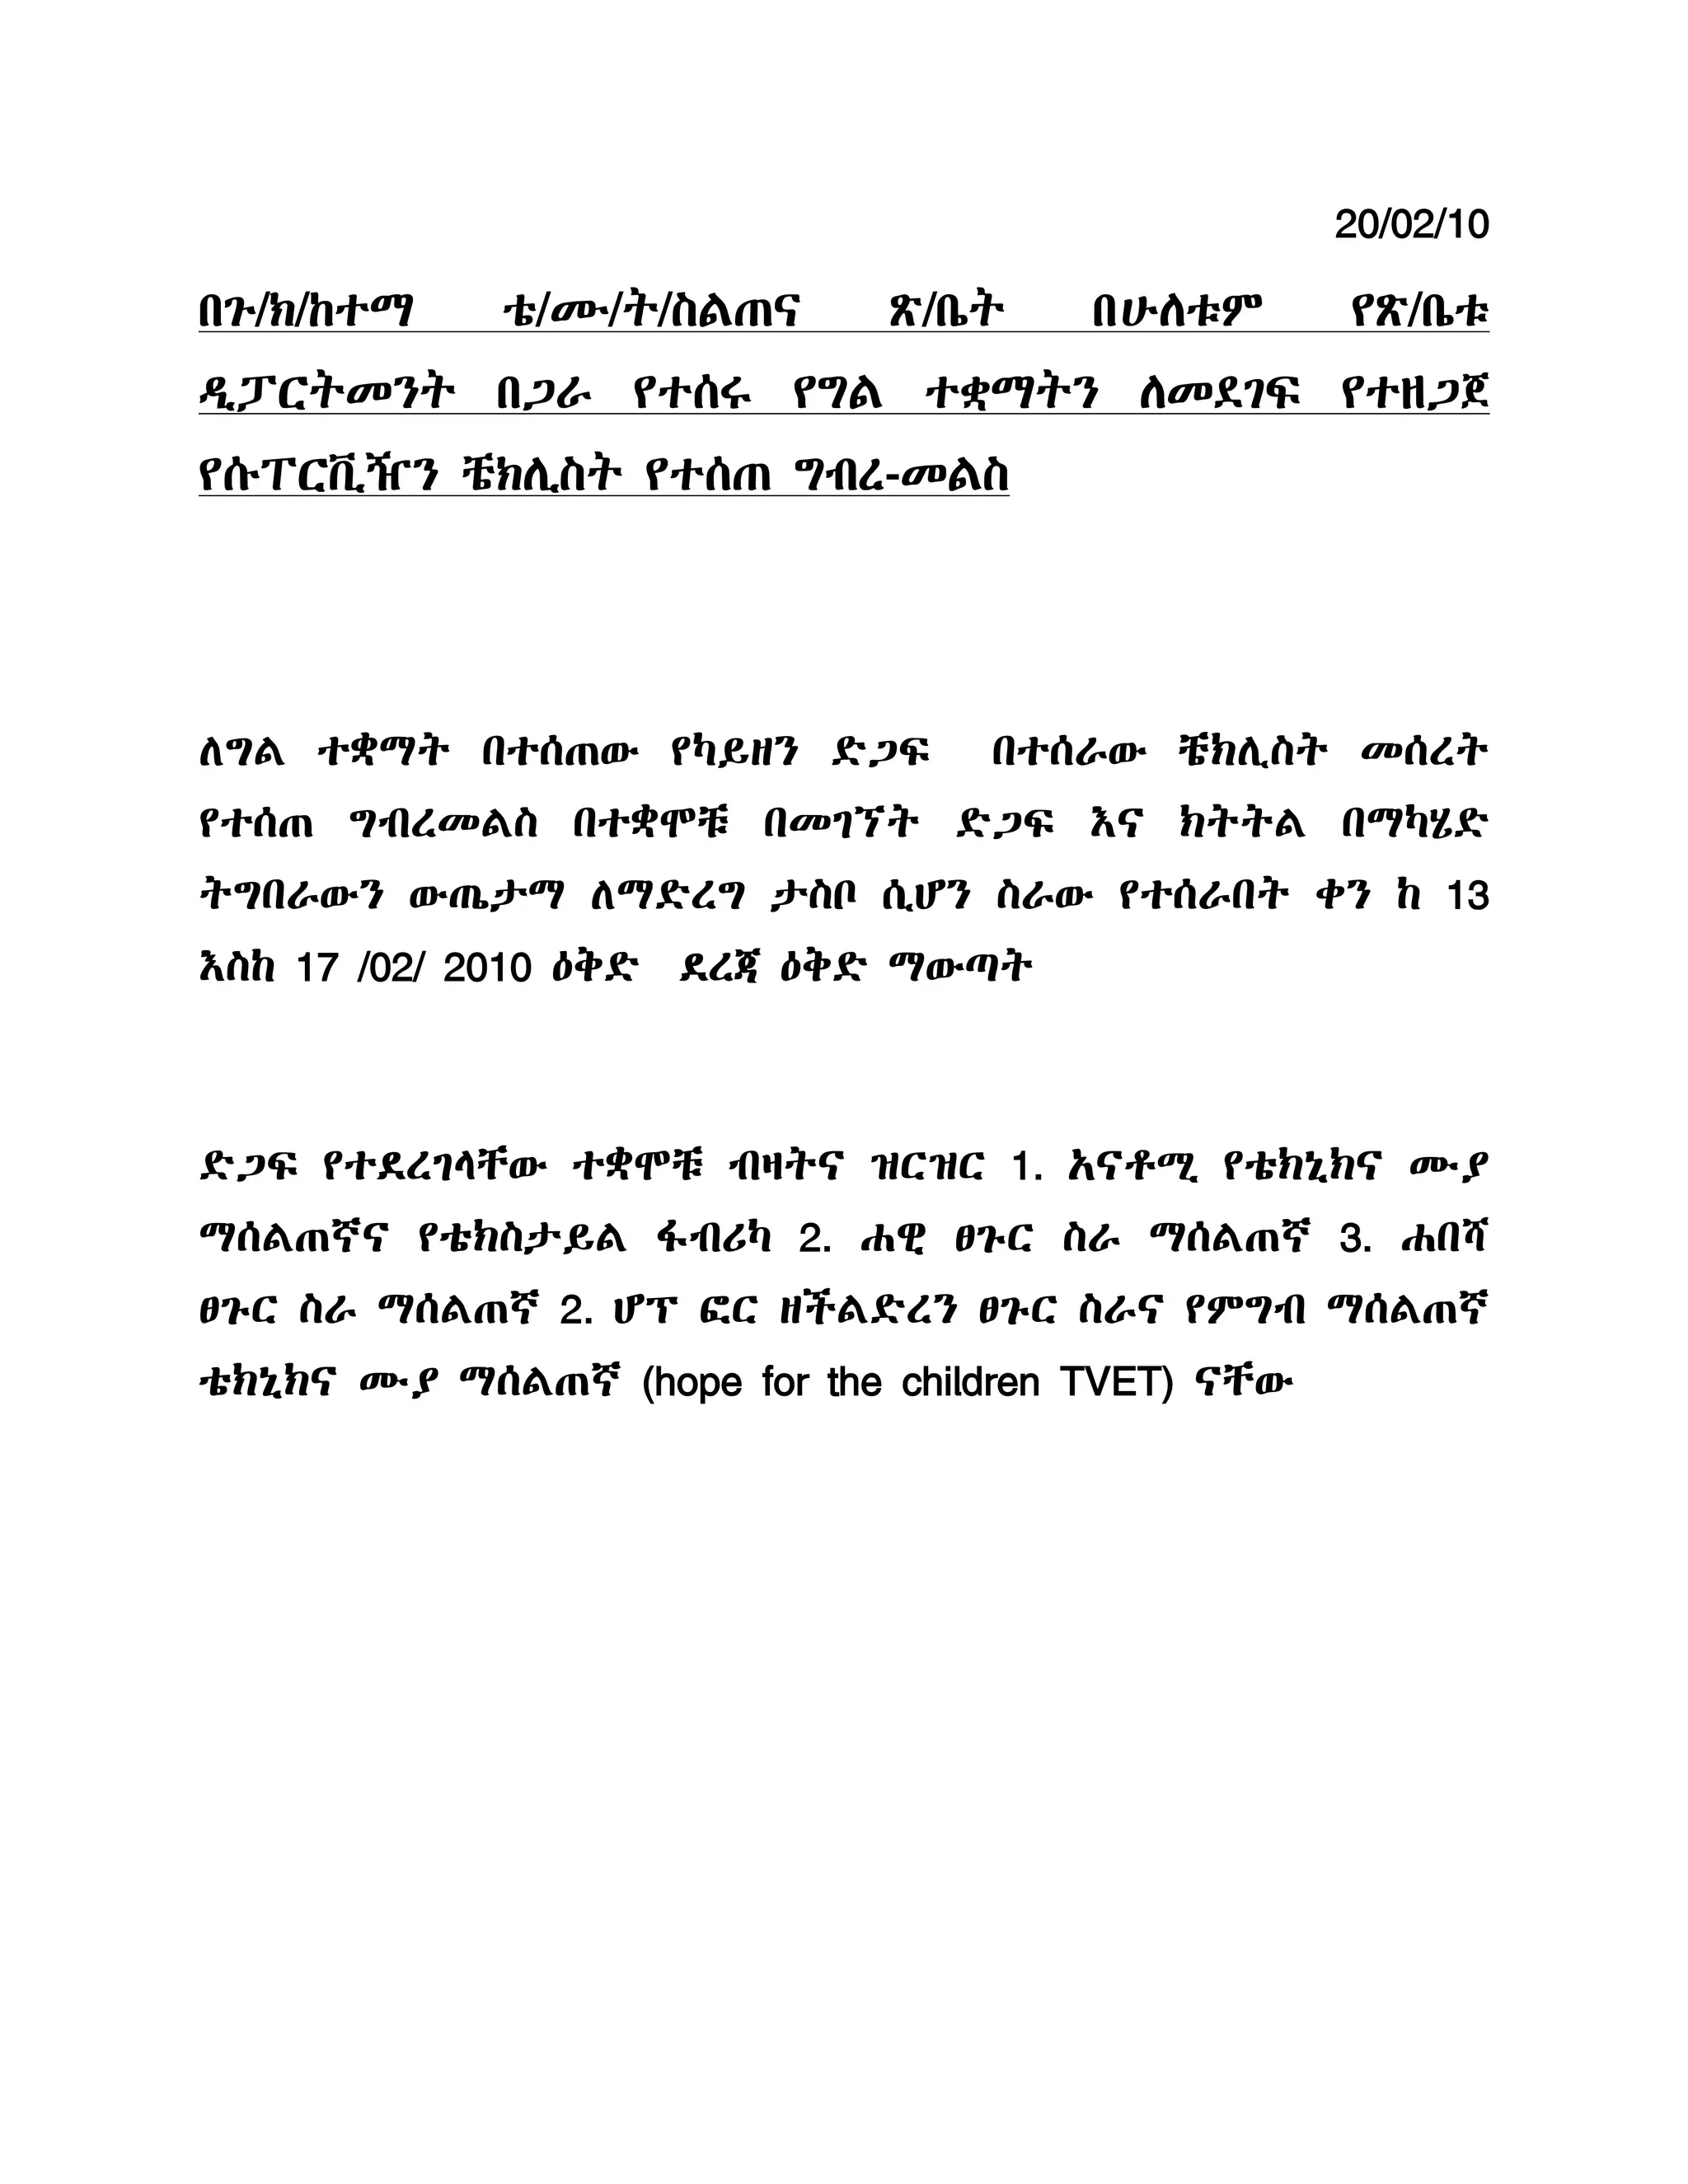 20/02/10
በጉ/ክ/ከተማ ቴ/ሙ/ት/ስልጠና ጽ/ቤት በሁለቱም የጽ/ቤቱ
ዲፓርትመንት በጋራ የተሰሩ የግል ተቋማትን ለመደገፍ የተዘጋጀ
የሱፐርቪዥን ቼክሊስት የተሰጠ ግብረ-መልስ
ለግል ተቋማት በተሰጠው የካይዘን ድጋፍ በተሰራው ቼክሊስት መሰረት
የተሰጠ ግብረመልስ በተቋሞቹ በመገኘት ድጋፍ እና ክትትል በማካሄድ
ትግበራውን ውጤታማ ለማድረግ ታስቦ ሲሆን ስራው የተሰራበት ቀን ከ 13
እስከ 17 /02/ 2010 ዕቅድ ደረጃ ዕቅድ ማውጣት
ድጋፍ የተደረገላቸው ተቋሞቹ ብዛትና ዝርዝር 1. አናቶሚ የቴክኒክና ሙያ
ማሰልጠኛና የቴክስታይል ፋብሪካ 2. ሐዊ ፀጉር ስራ ማሰልጠኛ 3. ሐበሻ
ፀጉር ስራ ማሰልጠኛ 2. ሆፕ ፎር ዘችልድረን ፀጉር ስራና የምግብ ማሰልጠኛ
ቴክኒክና ሙያ ማሰልጠኛ (hope for the children TVET) ናቸው